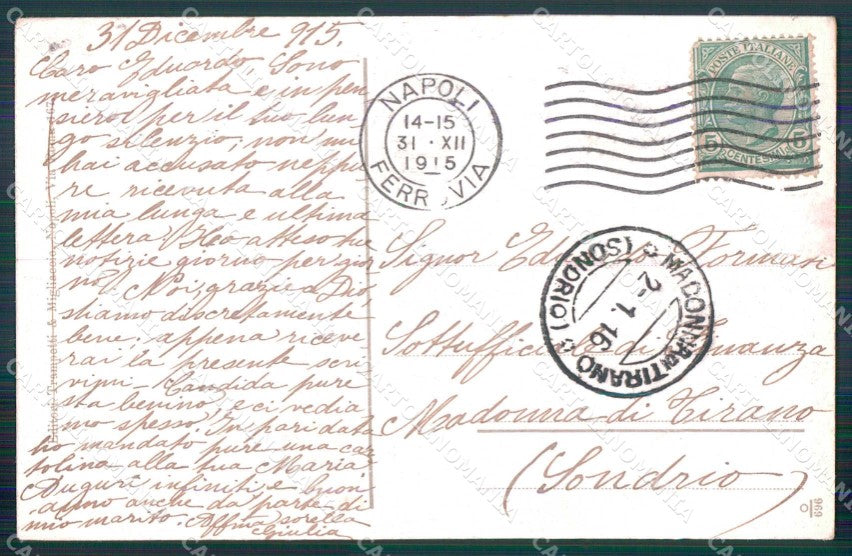 31 Dicembre 915.
Caro Eduardo Sono
meravigliata e in pen
siero per il tuo lun
go silenzio; non mi
hai accusato neppu
re ricevuta alla
mia lunga e ultima
lettera. Ho atteso tue
notizie giorno per gior
no. Noi, grazie a Dio,
stiamo discretamente
bene; appena riceve
rai la presente scri
vimi - Candida pure
sta benino, e ci vedia
mo spesso. In pari data
ho mandato pure una car
tolina alla tua Maria
Auguri infiniti e buon
anno anche da parte di
mio marito. Affma sorella
Giulia
NAPOLI
14-15
31 · XII
1915
FERROVIA
POSTE ITALIANE
5 5
CENTESIMI
Signor Eduardo Formari
Sottufficiale di Finanza
Madonna di Tirano
(Sondrio)
MADONNA DI TIRANO
(SONDRIO)
2-1.16
& Migliaccio
696
CARTOLINOMANIA